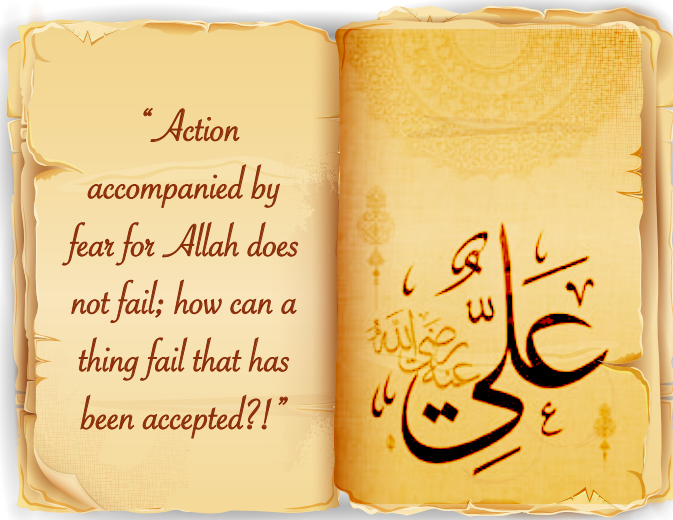 “ Action
accompanied by
fear for Allah does
not fail; how can a
thing fail that has
been accepted?! ”
عليّ
رضي الله عنه